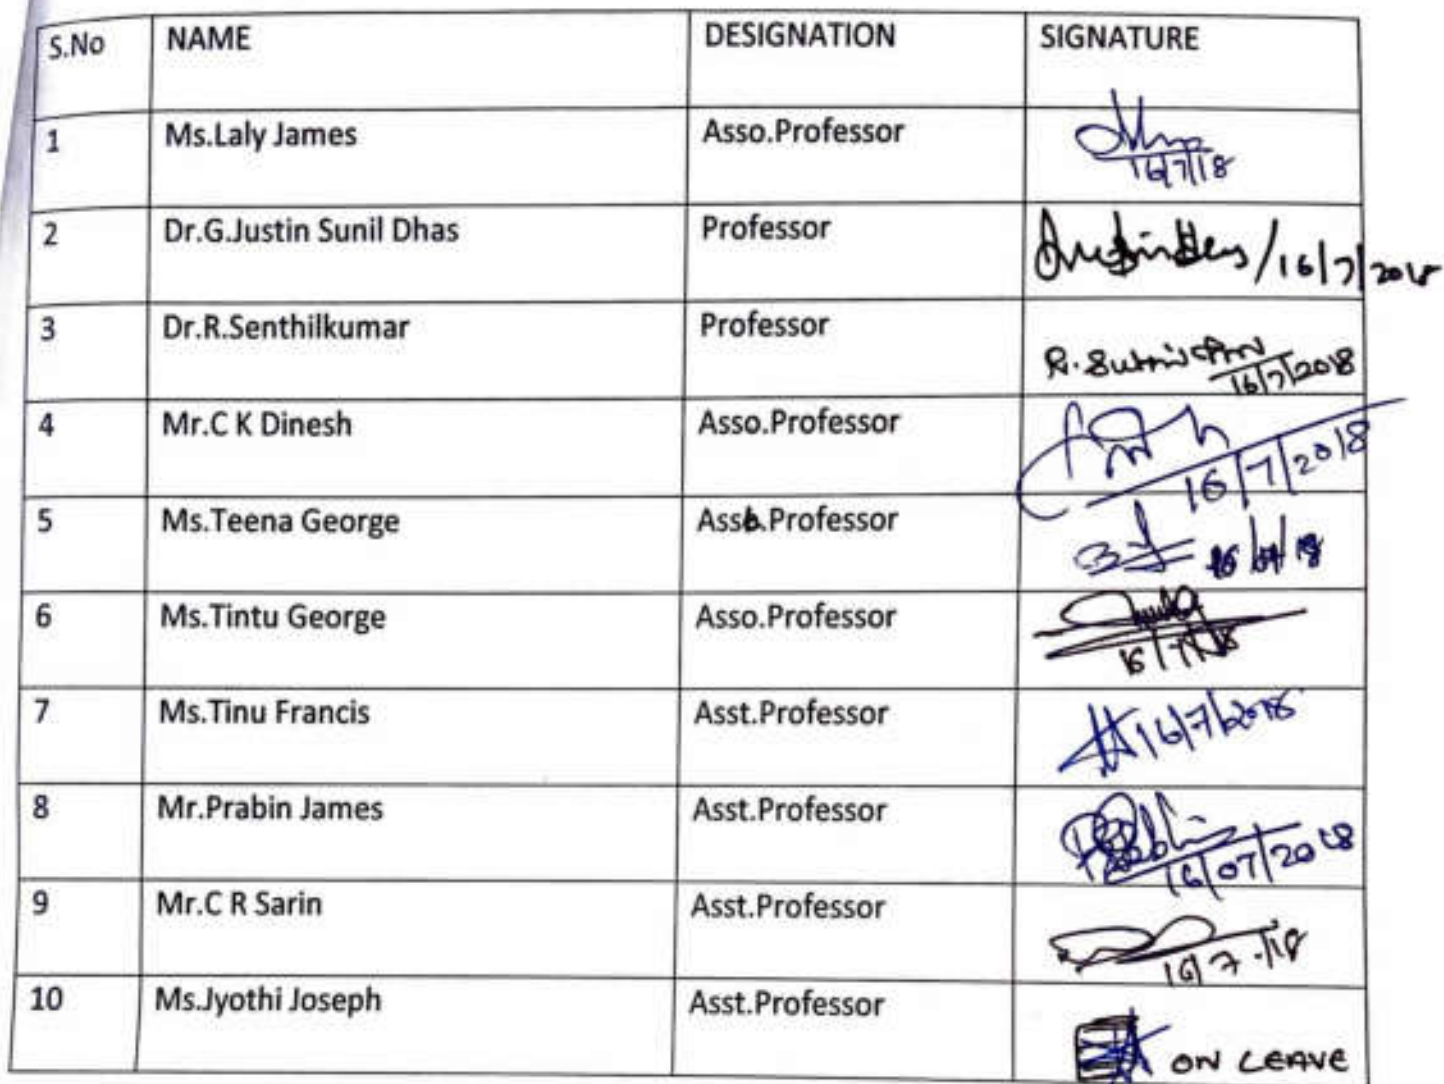 S.No NAME DESIGNATION SIGNATURE
1 Ms.Laly James Asso.Professor
16/7/18
2 Dr.G.Justin Sunil Dhas Professor /16/7/2018
3 Dr.R.Senthilkumar Professor
16/7/2018
4 Mr.C K Dinesh Asso.Professor
16/7/2018
5 Ms.Teena George Professor
16/07/18
6 Ms.Tintu George Asso.Professor
16/7/18
7 Ms.Tinu Francis Asst.Professor 16/7/2018
8 Mr.Prabin James Asst.Professor
16/07/2018
9 Mr.C R Sarin Asst.Professor
16/7.18
10 Ms.Jyothi Joseph Asst.Professor
ON LEAVE